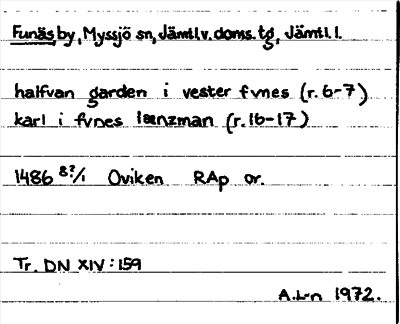 Funäs by, Myssjö sn, Jämtl.v. doms. tg, Jämtl. l.
halfvan garden i vester fvnes (r. 6-7)
karl i fvnes lænzman (r. 16-17)
1486 8?/1 Oviken RAp or.
Tr. DN XIV: 159
A.L-n 1972.